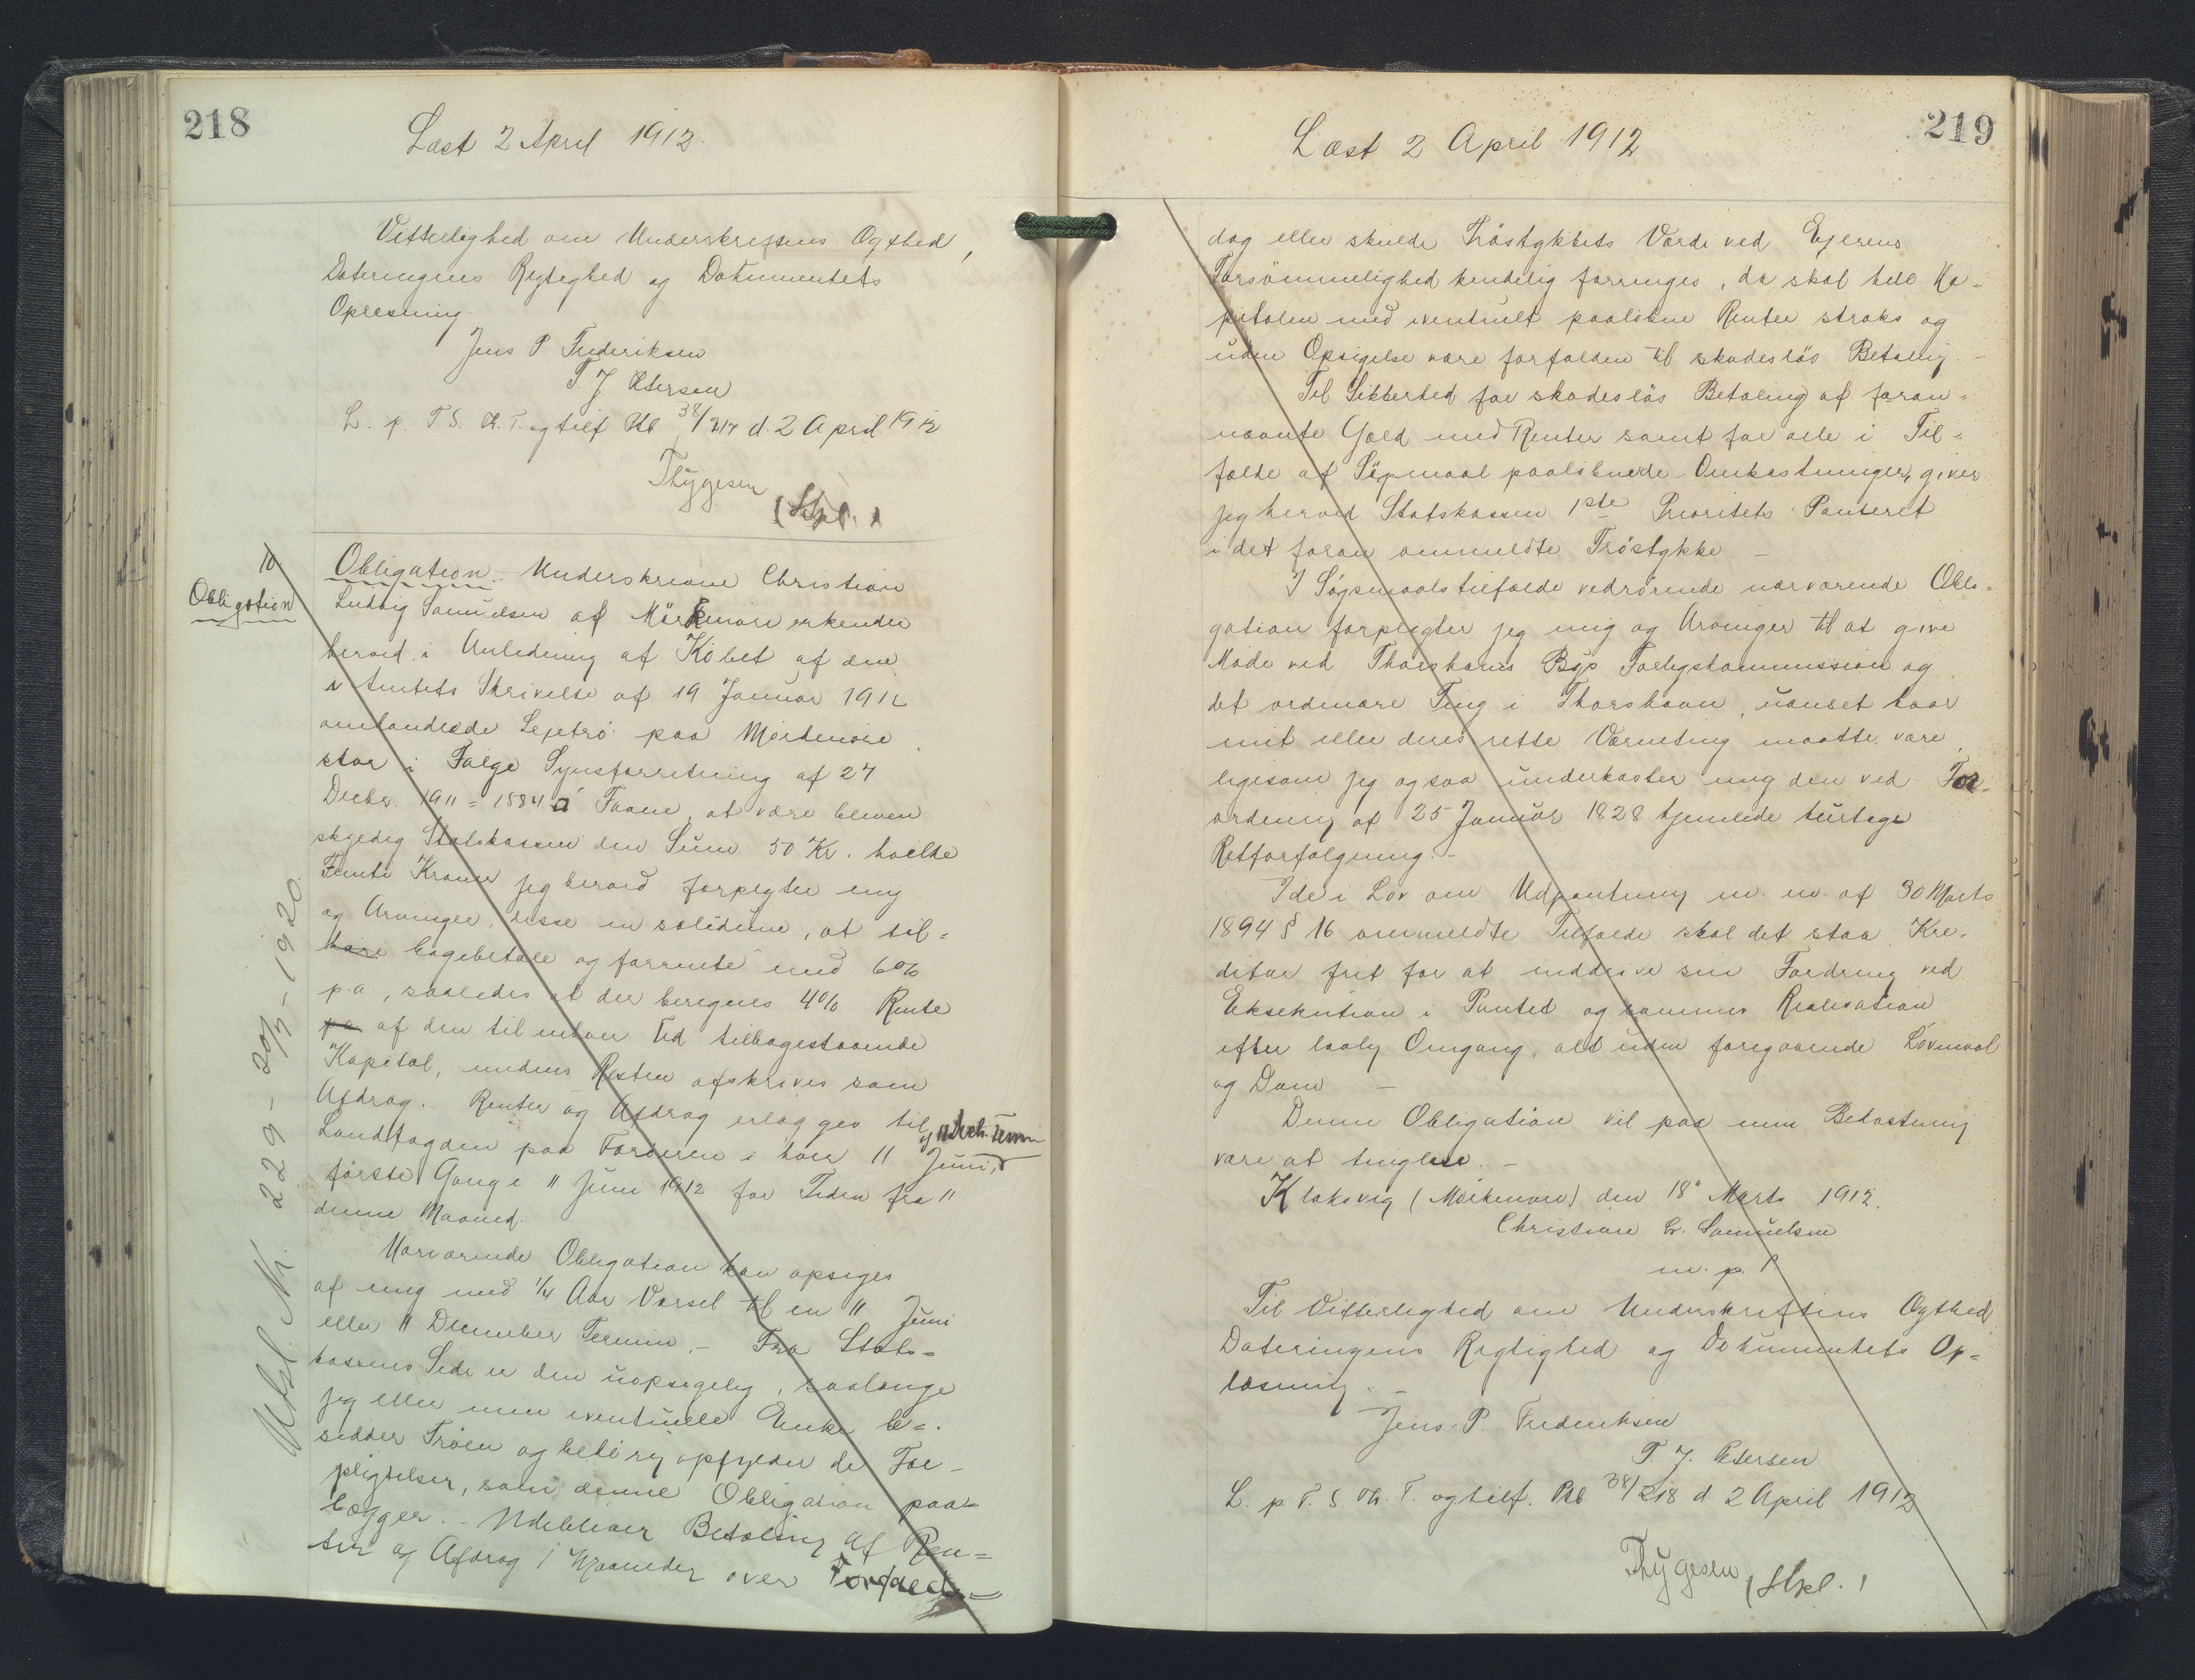 218
Læst 2 April 1912.
Vitterlighed om Underskriftens Ægthed,
Dateringens Rigtighed og Dokumentets
Oplæsning.
Jens P Frederiksen
T. J. Petersen
L. p. T. S. Th. T. og tilf Ptb 38/217 d. 2 April 1912
Thygesen
(Stpl.)
10
Obligation
Obligation. Underskrevne Christian
Ludvig Samuelsen af Mörkenöre erkender
herved i Anledning af Köbet af den
i Amtets Skrivelse af 19 Januar 1912
omhandlede Lejetrö paa Mörkenöre
stor i Fölge Synsforretning af 27
Decbr. 1911 = 1584 □ Favne, at være bleven
skyldig Statskassen den Sum 50 Kr. hvilke
Femti Kroner jeg herved forpligter mig
og Arvinger, disse in solidum, at til-
bage bagebetale og forrente med 6%
p.a., saaledes at der beregnes 4% Rente
p.a. af den til enhver Tid tilbagestaaende
Kapital, medens Resten afskrives som
Afdrag. Renter og Afdrag erlægges til
Landfogden paa Færöerne i hver 11 Juni,
og 11 Decb. Termin
förste Gang i 11 Juni 1912 for Tiden fra 11
denne Maaned.
Nærværende Obligation kan opsiges
af mig med 1/4 Aar Varsel til en 11 Juni
eller 11 December Termin. - Fra Stats-
kassens Side er den uopsigelig, saalænge
jeg eller min eventuelle Enke be-
sidder Tröen og behörig opfylder de For-
pligtelser, som denne Obligation paa-
lægger. - Udebliver Betaling af Ren-
ter og Afdrag 1 Maaneder over Forfalds-
Afsl. Nr. 229 - 20/7 - 1920.
219
Læst 2 April 1912
dag eller skulde Tröstykkets Værdi ved Ejerens
Forsömmelighed kendelig forringes, da skal hele Ka-
pitalen med eventuelt paalöbne Renter straks og
uden Opsigelse være forfalden til skadeslös Betaling. -
Til Sikkerhed for skadeslös Betaling af foran-
nævnte Gæld med Renter samt for alle i Til-
fælde af Sögsmaal paalöbende Omkostninger, giver
jeg herved Statskassen 1ste Prioritets Panteret
i det foran ommeldte Tröstykke -
I Sögsmaalstilfælde vedrörende nærværende Obli-
gation forpligter jeg mig og Arvinger til at give
Möde ved Thorshavns Bys Forligskommission og
det ordinære Ting i Thorshavn, uanset hvor
mit eller deres rette Værneting maatte være,
ligesom jeg ogsaa underkaster mig den ved For-
ordning af 25 Januar 1828 hjemlede hurtige
Retforfölgning. -
I de i Lov om Udpantning m. m. af 30 Marts
1894 § 16 ommeldte Tilfælde skal det staa Kre-
ditor frit for at inddrive sin Fordring ved
Eksekution i Pantet og sammes Realisation
efter lovlig Omgang, alt uden foregaaende Lovmaal
og Dom -
Denne Obligation vil paa min Bekostning
være at tinglæse. -
Klaksvig (Mörkenöre) den 18' Marts 1912.
Christian L. Samuelsen
m. p. p.
Til Vitterlighed om Underskriftens Ægthed
Dateringens Rigtighed og Dokumentets Op-
læsning. -
Jens P. Frederiksen
T. J. Petersen
L. p. T. S. Th. T. og tilf. Ptb 38/218 d 2 April 1912
Thygesen
(Stpl.)